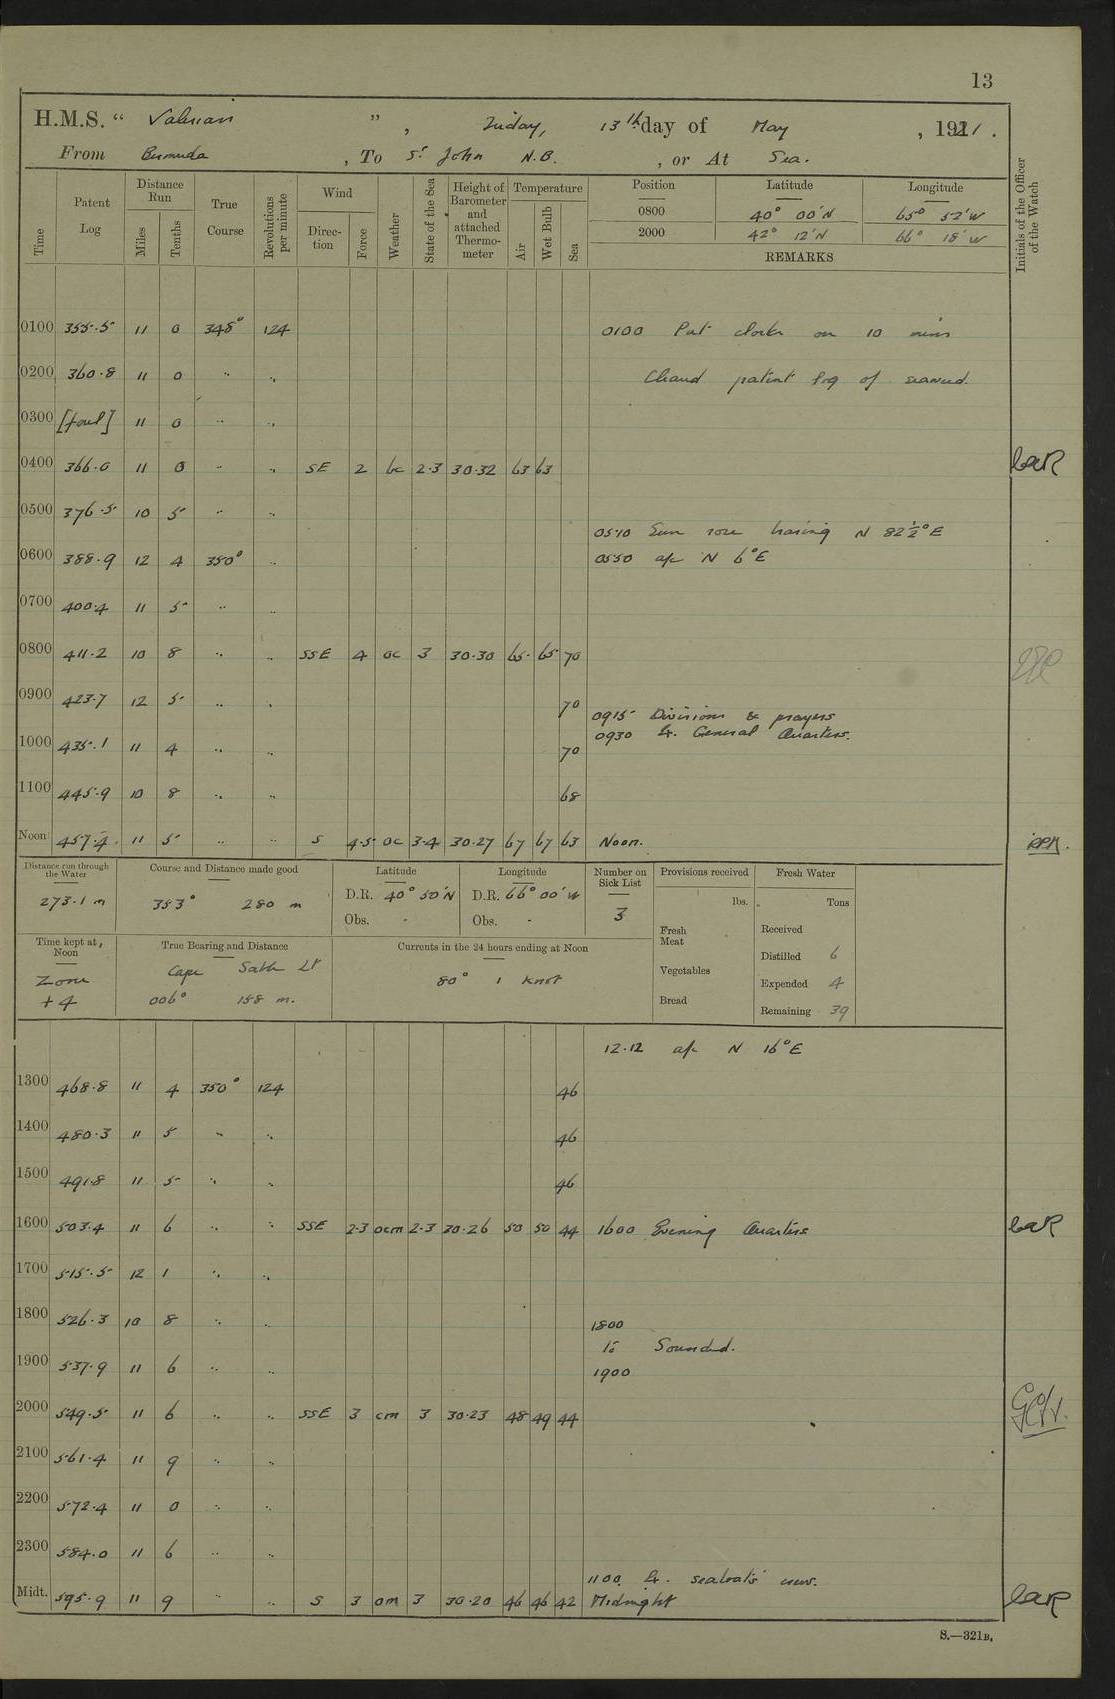 13
H.M.S. “ Valerian ” , Friday, 13th day of May , 1921 .
From Bermuda , To St John N.B. , or At Sea.
Time Patent Log Distance Run Miles Tenths True Course Revolutions per minute Wind Direction Force Weather State of the Sea Height of Barometer and attached Thermometer Temperature Air Wet Bulb Sea Position Latitude Longitude Initials of the Officer of the Watch
0800 40° 00' N 65° 52' W
2000 42° 12' N 66° 18' W
REMARKS
0100 355.5 11 0 348° 124 0100 Put clocks on 10 mins
0200 360.8 11 0 " " Cleared patent log of seaweed.
0300 [foul] 11 0 " "
0400 366.0 11 0 " " SE 2 bc 2.3 30.32 63 63
0500 376.5 10 5 " "
0510 Sun rose bearing N 82½° E
0600 388.9 12 4 350° " 0550 a/c N 6° E
0700 400.4 11 5 " "
0800 411.2 10 8 " " SSE 4 oc 3 30.30 65 65 70
0900 423.7 12 5 " " 70
0915 Divisions & prayers
0930 Ex. General Quarters.
1000 435.1 11 4 " " 70
1100 445.9 10 8 " " 68
Noon 457.4 11 5 " " S 4.5 oc 3.4 30.27 67 67 63 Noon.
Distance run through the Water Course and Distance made good Latitude Longitude Number on Sick List Provisions received Fresh Water
273.1 m 353° 280 m D.R. 40° 50' N D.R. 66° 00' W 3 lbs. Tons
Obs. - Obs. -
Fresh Meat Received
Time kept at Noon True Bearing and Distance Currents in the 24 hours ending at Noon Vegetables Distilled 6
Zone +4 Cape Sable Lt 006° 158 m. 80° 1 knot Expended 4
Bread Remaining 39
12.12 a/c N 16° E
1300 468.8 11 4 350° 124 46
1400 480.3 11 5 " " 46
1500 491.8 11 5 " " 46
1600 503.4 11 6 " " SSE 2.3 ocm 2.3 30.26 50 50 44 1600 Evening Quarters
1700 515.5 12 1 " "
1800 526.3 10 8 " " 1800
to Sounded.
1900 537.9 11 6 " " 1900
2000 549.5 11 6 " " SSE 3 cm 3 30.23 48 49 44
2100 561.4 11 9 " "
2200 572.4 11 0 " "
2300 584.0 11 6 " "
1100. Ex. seaboat's crew.
Midt. 595.9 11 9 " " S 3 om 3 30.20 46 46 42 Midnight
S.—321B.